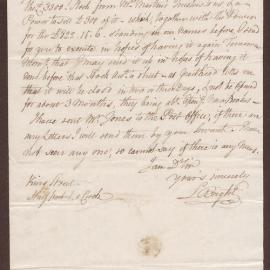 this £3300. Stock from Mr. Martins
Power to sell £300 of it - which, together with the Power
for the £822.15.6. standing in our names before I send
for you to execute in hopes of having it again Tomorrow
Morng. that I may send it up in hopes of having it
before this Stock Act is shut - at Bank tells me
that it will be closed in two or three Days, & not be opened
for about 3 Months, they being
Have sent Mr. Jones to the Post Office, if there are
any Letters I will send them by your Servant. I have
not seen any one, so cannot say if there is any News.
I am Dr. Sir
Yours sincerely
Wright
King Street
Half past 2 o'Clock